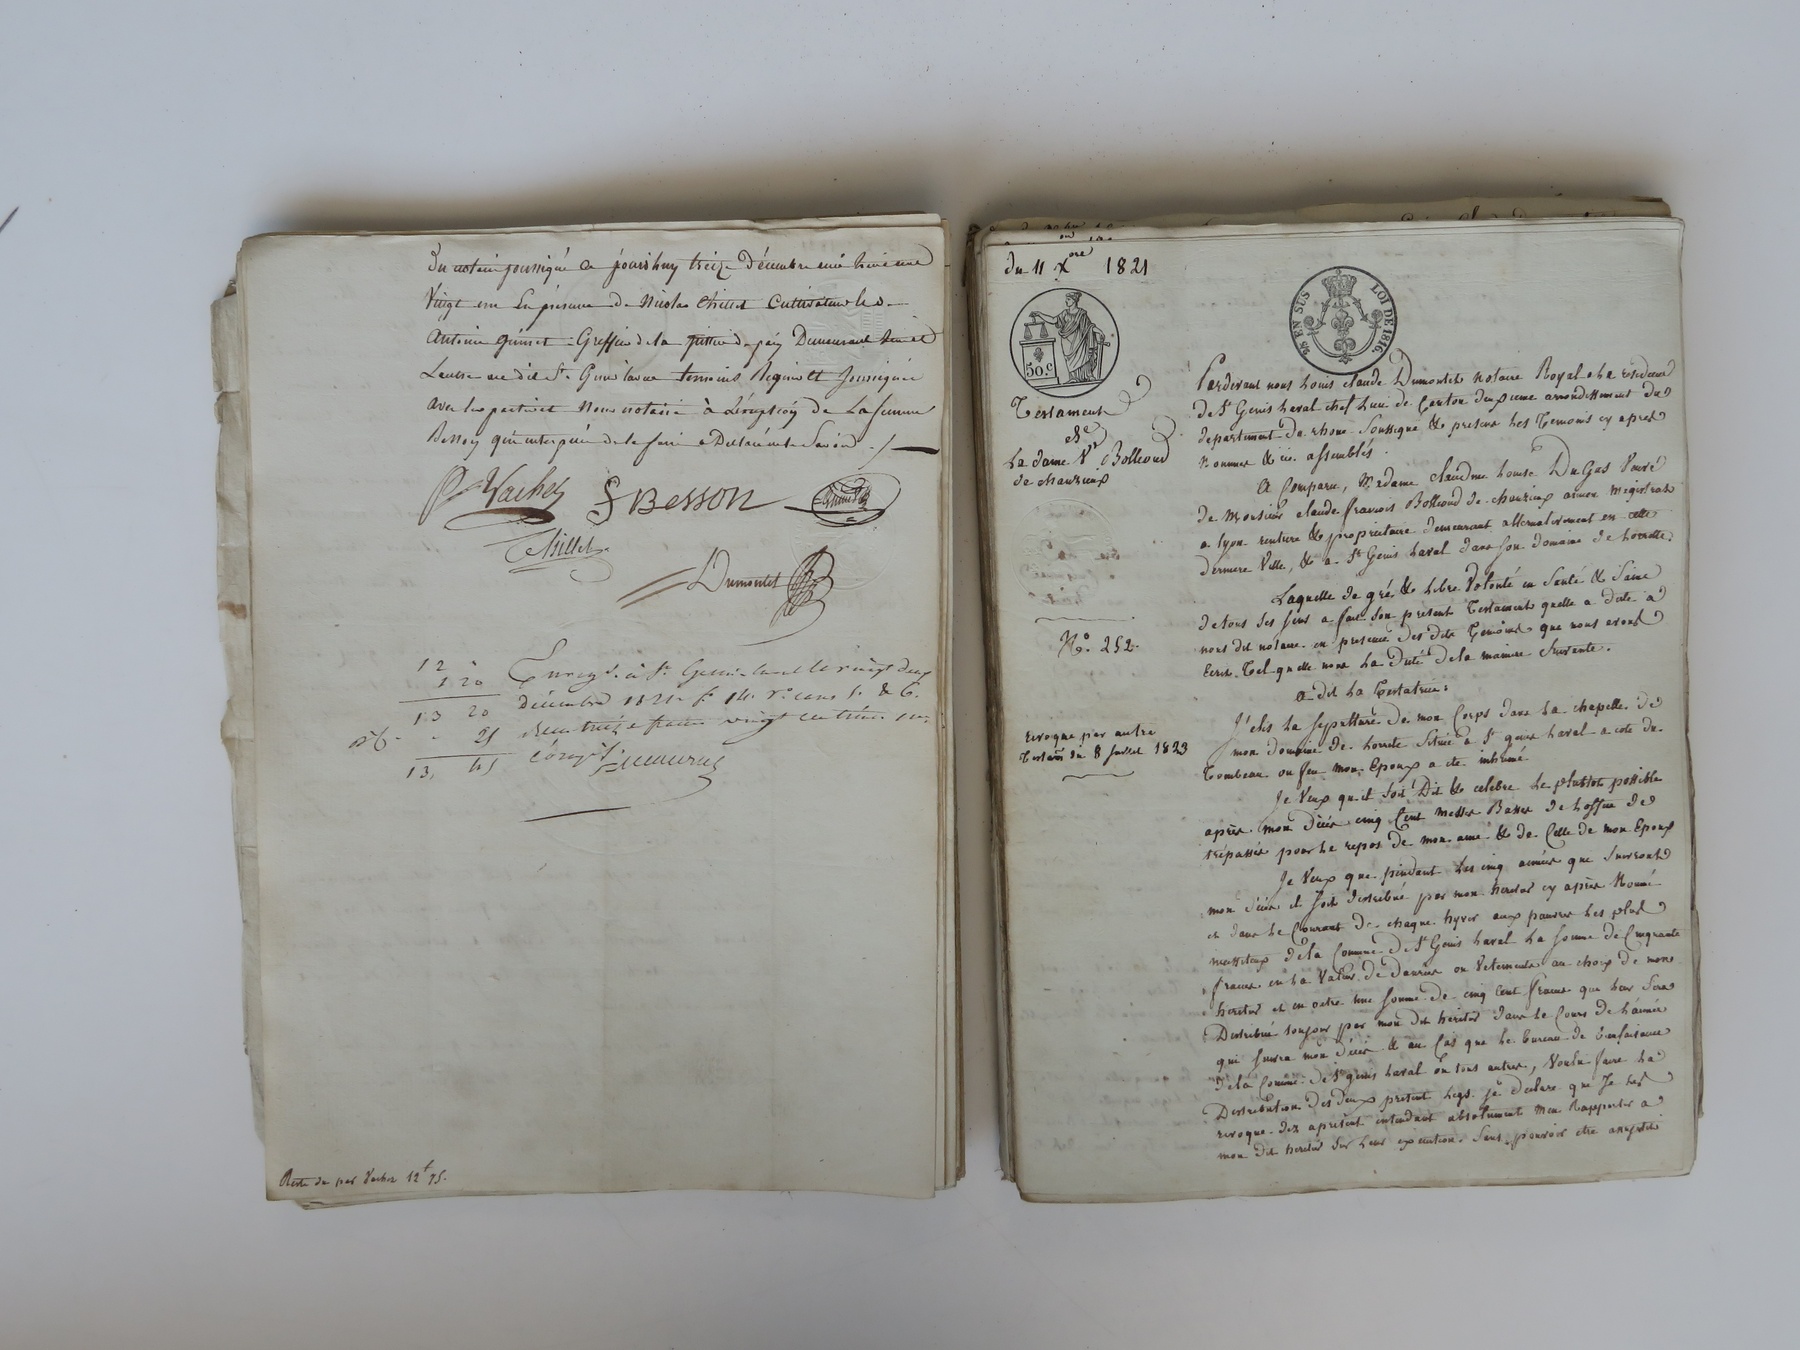 Du notaire soussigné ce jourdhuy treize Décembre mil huit cent
Vingt un En présence de Nicolas Thillet Cultivateur & d
Antoine Greffier de la justice de paix Demeurant
audit St. Genis laval temoins Requis et soussignés
avec les parties et Nous notaire à L'éxception de La femme
Besson qui interpellée de le faire a Déclaré ne Savoir ./.
P Vachez
f Besson
Thillet
Dumontet
12 "
1 20
13 20
" 25
13, 45
Enregé. à St. Genis laval le vingt deux
décembre 1821 fo. 14 ro. cases 5. & 6.
Reçu treize francs vingt centimes
Reste du par Vachez 12f 75.
du 11 Xbre 1821
50.c
25 EN SUS LOI DE 1816
Testament
de
La dame Ve Bollioud
de chanzieux
No. 252.
revoqué par autre
Testamt du 8 Juillet 1823
Pardevant nous Louis Claude Dumontet notaire Royal a la residence
de St Genis Laval chef Lieu de Canton deuxieme arrondissement du
departement du rhone Soussigné & presens Les Temoins cy après
nommés & ici assemblés.
A Comparu, Madame claudine Louise DuGas Veuve
de Monsieur claude françois Bollioud de chanzieux ancien magistrat
a Lyon rentiere & propriétaire demeurant alternativement en cette
derniere Ville, & a St Genis Laval dans son domaine de Lorette.
Laquelle de gré & Libre Volonté en Santé & Saine
de tous ses sens a fait son present Testament quelle a dicté a
nous dit notaire en presence des dits Temoins que nous avons
Ecrit Tel quelle nous La dicté de la maniere Suivante.
a dit La Testatrice:
J'elis La sepulture de mon Corps dans La chapelle de
mon domaine de Lorette Située a St genis Laval a coté du
Tombeau ou feu mon Epoux a eté inhumé
Je Veux qu'il soit Dit & celebré Le plustot possible
après mon décès cinq Cent Messes Basses de Loffice des
trépassés pour Le repos de mon ame & de Celle de mon Epoux
Je Veux que pendant Les cinq années que Suivront
mon décès il soit distribué par mon heritier cy après Nommé
et dans Le Courant de chaque hyver aux pauvres Les plus
necessiteux de la Commune de St Genis Laval La somme de Cinquante
francs en La Valeur de Danrées ou Vetements au choix de mon
heritier et en outre une somme de cinq Cent francs que Leur Sera
Distribué toujour par mon dit heritier dans Le Cours de Lannée
qui suivra mon décès & au Cas que Le bureau de bienfaisance
de la Commune de St genis Laval ou tous autres, Voulu faire La
Distribution des deux present Legs je declare que Je Les
revoque dez apresent entendant absolument Men Rapporter a
mon dit heritier Sur Leur execution Sans pouvoir etre